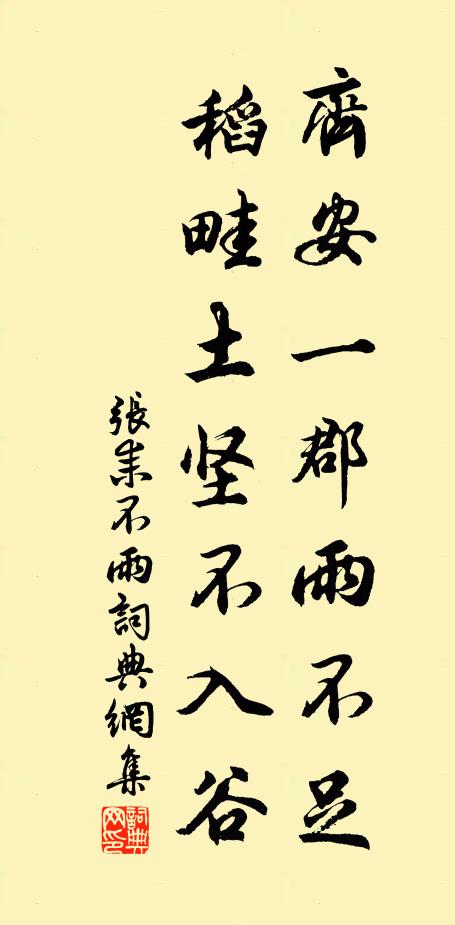 齊安一郡雨不足
稻畦土坚不入谷
張耒不雨詞典網集
詞典网印